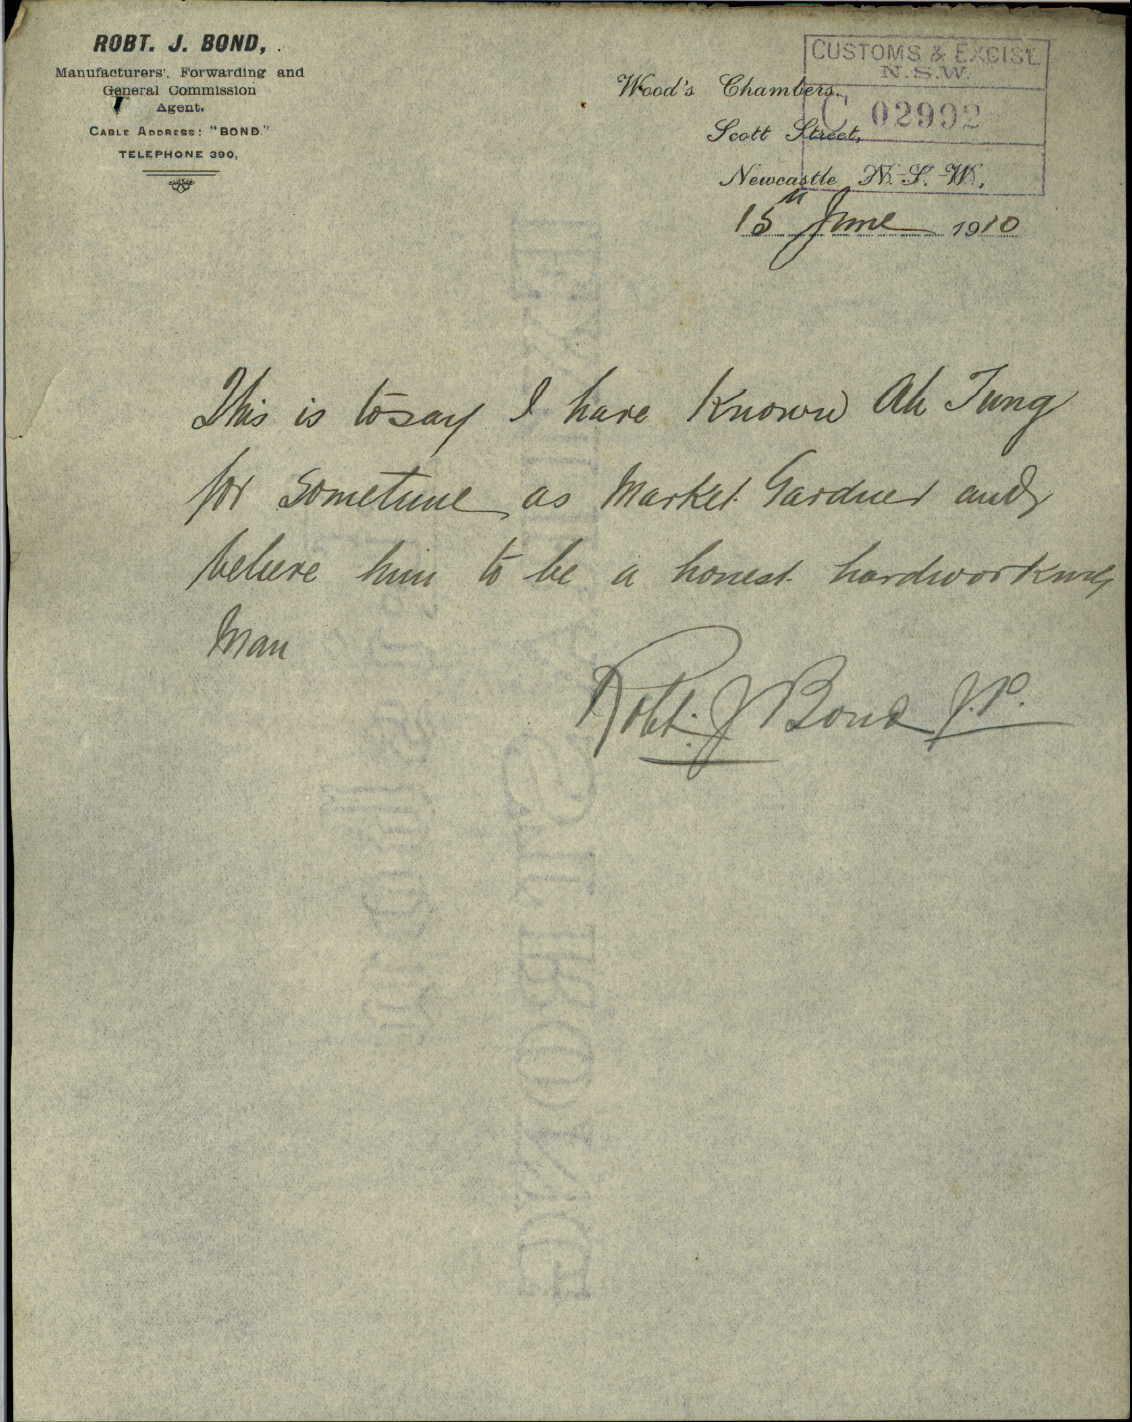 ROBT. J. BOND,
Manufacturers', Forwarding and
General Commission
Agent.
CABLE ADDRESS: "BOND."
TELEPHONE 390,
CUSTOMS & EXCISE
N.S.W.
C 02992
Wood's Chambers,
Scott Street,
Newcastle N. S. W.,
15th June 1910
This is to say I have Known Ah Tung
for sometime as Market Gardner and
believe him to be a honest hardworking
Man
Robt. J Bond J.P.
EXTRA STRONG